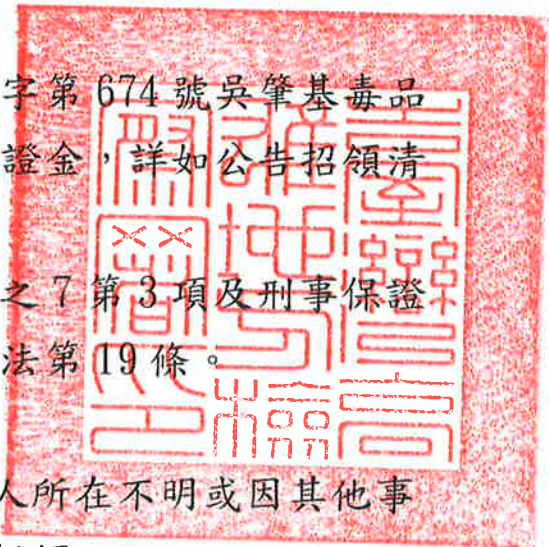 字第 674 號吳肇基毒品
證金，詳如公告招領清
之 7 第 3 項及刑事保證
法第 19 條。
人所在不明或因其他事